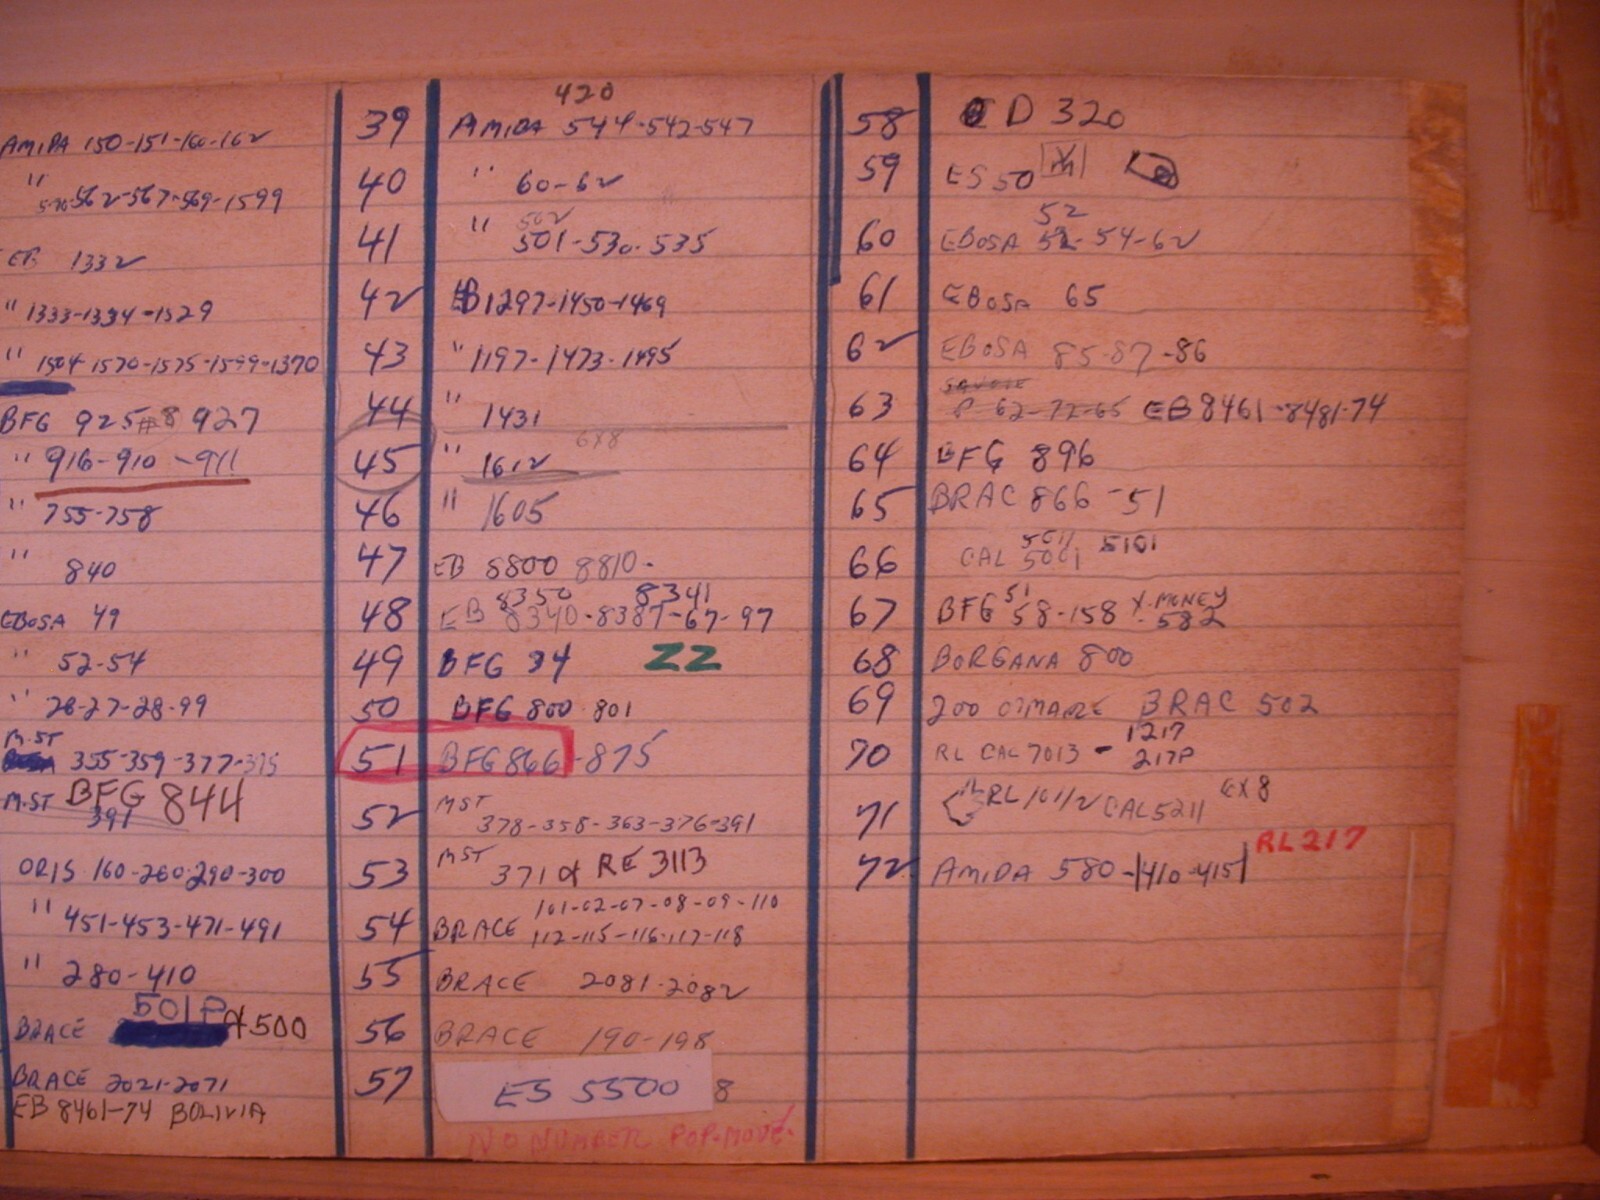 AMIDA 150-151-160-162
" 562-567-569-1599
EB 1332
" 1333-1334-1529
" 1504 1570-1575-1599-1370
BFG 925 8 927
" 916-910-911
" 755-758
" 840
EBOSA 49
" 52-54
" 26-27-28-99
M.ST 355-359-377-375
M.ST BFG 844
391
ORIS 160-260-290-300
" 451-453-471-491
" 280-410
501P
BRACE & 500
BRACE 2021-2071
EB 8461-74 BOLIVIA
420
39 AMIDA 544-542-547
40 " 60-62
502
41 " 501-530-535
42 EB 1297-1450-1469
43 " 1197-1473-1495
44 " 1431
6X8
45 " 1612
46 " 1605
47 EB 8800 8810-
8350 8341
48 EB 8340-8387-67-97
49 BFG 34 ZZ
50 BFG 800 801
51 BFG 866-875
52 MST
378-358-363-376-391
53 MST 371 & RE 3113
101-02-07-08-09-110
54 BRACE 112-115-116-117-118
55 BRACE 2081-2082
56 BRACE 190-198
57 ES 5500 8
NO NUMBER POP-MOVE
58 ED 320
59 ES 50
52
60 EBOSA 52-54-62
61 EBOSA 65
62 EBOSA 85-87-86
SAVOIE
63 P 62-72-65 EB 8461-8481-74
64 BFG 896
65 BRAC 866-51
5011 5101
66 CAL 5001
51 X-MONEY
67 BFG 58-158-582
68 BORGANA 800
69 200 BRAC 502
1217
70 RL CAL 7013 - 217P
71 RL 1011/2 CAL 5211 6X8
RL217
72 AMIDA 580-410-415